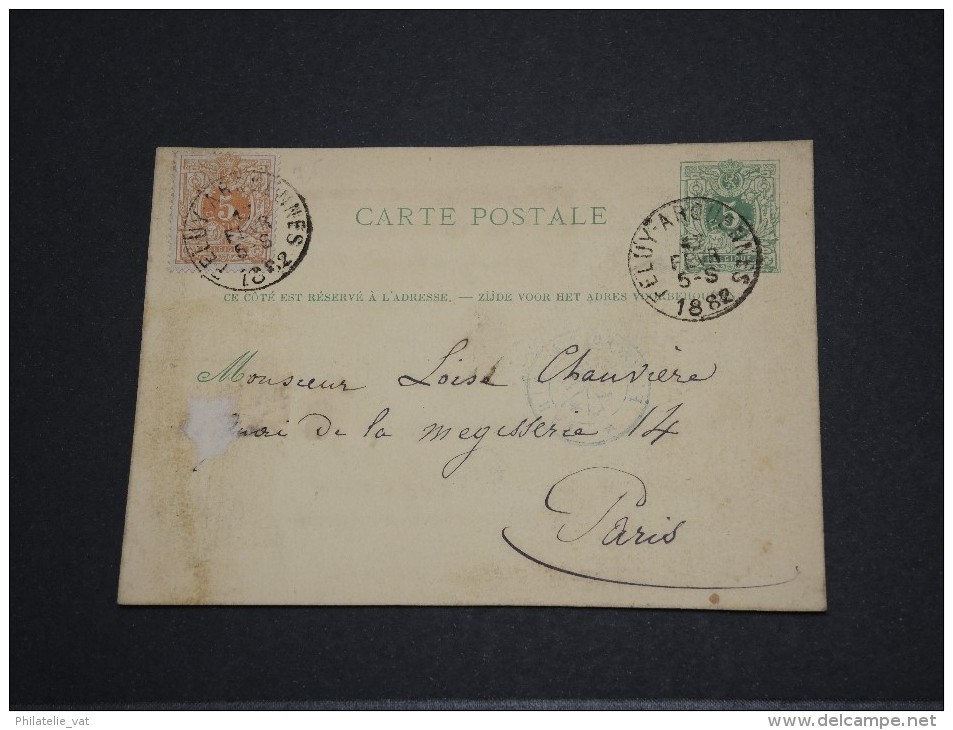 CARTE POSTALE
5
FELUY-ARQUENNES
5-S
1882
FELUY-ARQUENNES
FEVR
5-S
1882
CE CÔTÉ EST RÉSERVÉ À L'ADRESSE. — ZIJDE VOOR HET ADRES VOORBEHOUDEN
Monsieur Loise Chauvière
Quai de la megisserie 14
Paris
Philatelie_vat
delcampe.net